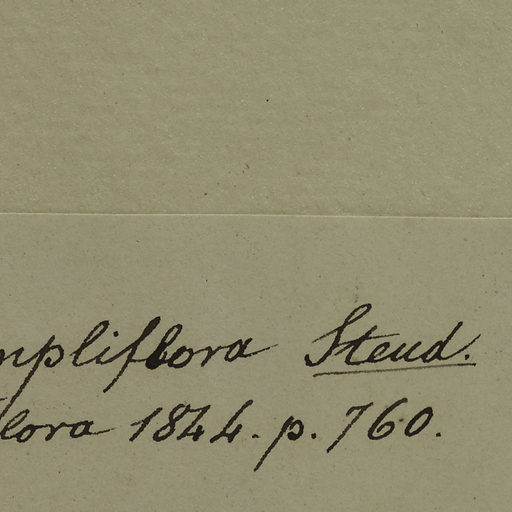 mpliflora Steud.
lora 1844. p. 760.